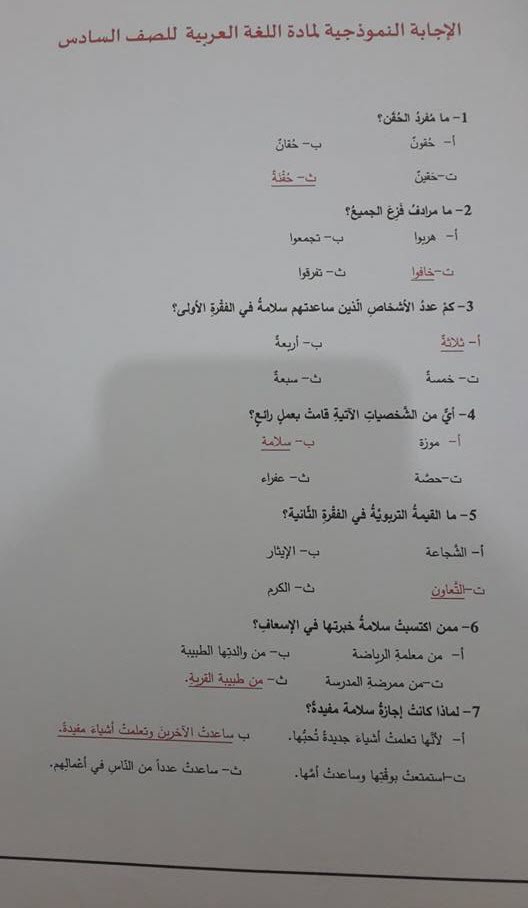 الإجابة النموذجية لمادة اللغة العربية للصف السادس
1- ما مُفردُ الحُقَن؟
أ- حُقونٌ ب- حُقانٌ
ت- حَقينٌ ث- حُقْنَةٌ
2- ما مرادفُ فَزِعَ الجميعُ؟
أ- هربوا ب- تجمعوا
ت- خافوا ث- تفرقوا
3- كمْ عددُ الأشخاصِ الّذين ساعدتهم سلامةُ في الفقْرةِ الأولى؟
أ- ثلاثةٌ ب- أربعةٌ
ت- خمسةٌ ث- سبعةٌ
4- أيٌّ من الشَّخصياتِ الآتيةِ قامتْ بعملٍ رائعٍ؟
أ- موزة ب- سلامة
ت- حصّة ث- عفراء
5- ما القيمةُ التربويَّةُ في الفقْرةِ الثّانية؟
أ- الشَّجاعة ب- الإيثار
ت- التَّعاون ث- الكرم
6- ممن اكتسبتْ سلامةُ خبرتها في الإسعافِ؟
أ- من معلمةِ الرياضة ب- من والدتِها الطبيبة
ت- من ممرضةِ المدرسة ث- من طبيبة القرية.
7- لماذا كانتْ إجازةُ سلامة مفيدةً؟
أ- لأنَّها تعلمتْ أشياءَ جديدةً تُحبُّها. ب ساعدتْ الآخرينَ وتعلمتْ أشياءَ مفيدةً.
ت- استمتعتْ بوقْتِها وساعدتْ أمَّها. ث- ساعدتْ عدداً من النّاسِ في أعْمالِهم.